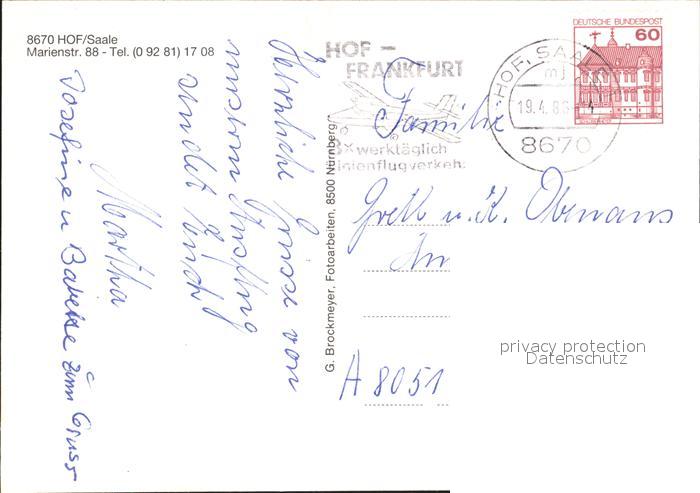 8670 HOF/Saale
Marienstr. 88 - Tel. (0 92 81) 17 08
HOF -
FRANKFURT
3x werktäglich
Linienflugverkehr
HOF, SAALE
mj
19.4.83
8670
DEUTSCHE BUNDESPOST
60
Herzliche Grüsse von
unserem Ausflug
sendet Euch
Martha
Josefine u Babette zum Gruss
G. Brockmeyer, Fotoarbeiten, 8500 Nürnberg
Familie
Gretl u. K.
A 8051
privacy protection
Datenschutz